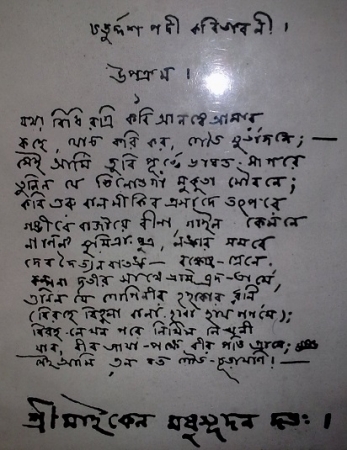 চতুর্দ্দশ পদী কবিতাবলী।
উপক্রম।
১
যথা বিধি বন্দি কবি আনন্দে আসরে
কহে, যোড় করি কর, গৌড় সুভাজনে;—
সেই আমি, ডুবি পূর্ব্বে ভারত-সাগরে
তুলিল যে তিলোত্তমা মুকুতা যৌবনে;
কবি গুরু বাল্মীকির প্রসাদে তৎপরে
গম্ভীরে বাজায়ে বীণা, গাইল, কেমনে
নাশিলা সুমিত্রা পুত্র, লঙ্কার সমরে
দেব দৈত্য নরাতঙ্ক— রক্ষেন্দ্র-নন্দনে;
কল্পনা দূতীর সাথে ভ্রমি ব্রজ-ধামে,
শুনিল যে গোপিনীর হাহাকার ধ্বনি
(বিরহে বিহ্বলা বালা হারা হয়ে শ্যামে);
বিরহ-লেখন পরে লিখিল লেখনী
যার, বীর জায়া-পক্ষে বীর পতি গ্রামে;
সেই আমি, শুন যত গৌড়-চূড়ামণি!—
শ্রী মাইকেল মধুসূদন দত্তঃ।